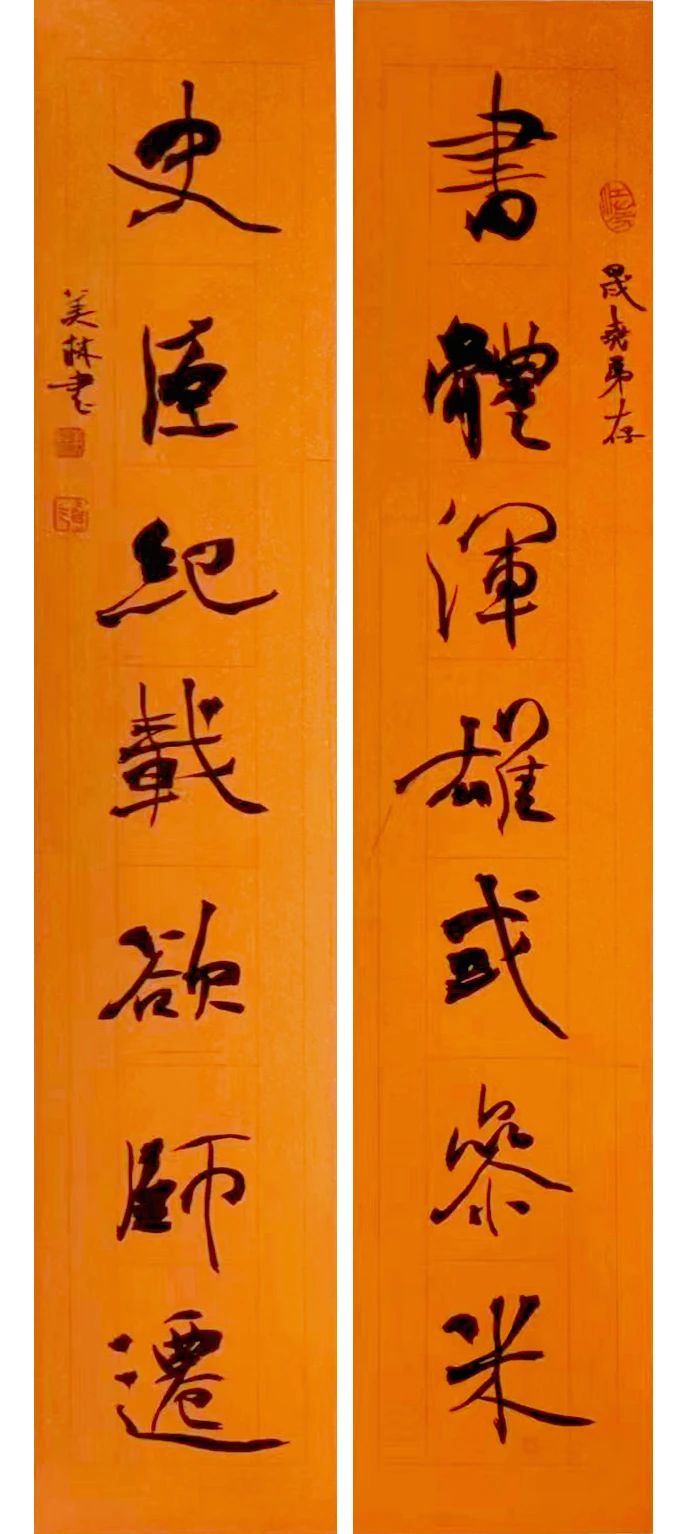 晟堯弟存
書體渾雄或參米
史臣紀載欲師遷
美林書